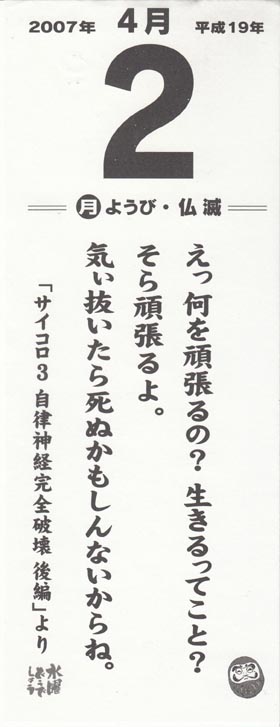 2007年 4月 平成19年
2
月 ようび・仏滅
えっ何を頑張るの？ 生きるってこと？
そら頑張るよ。
気ぃ抜いたら死ぬかもしんないからね。
「サイコロ３ 自律神経完全破壊 後編」より
水曜
どうで
しょう